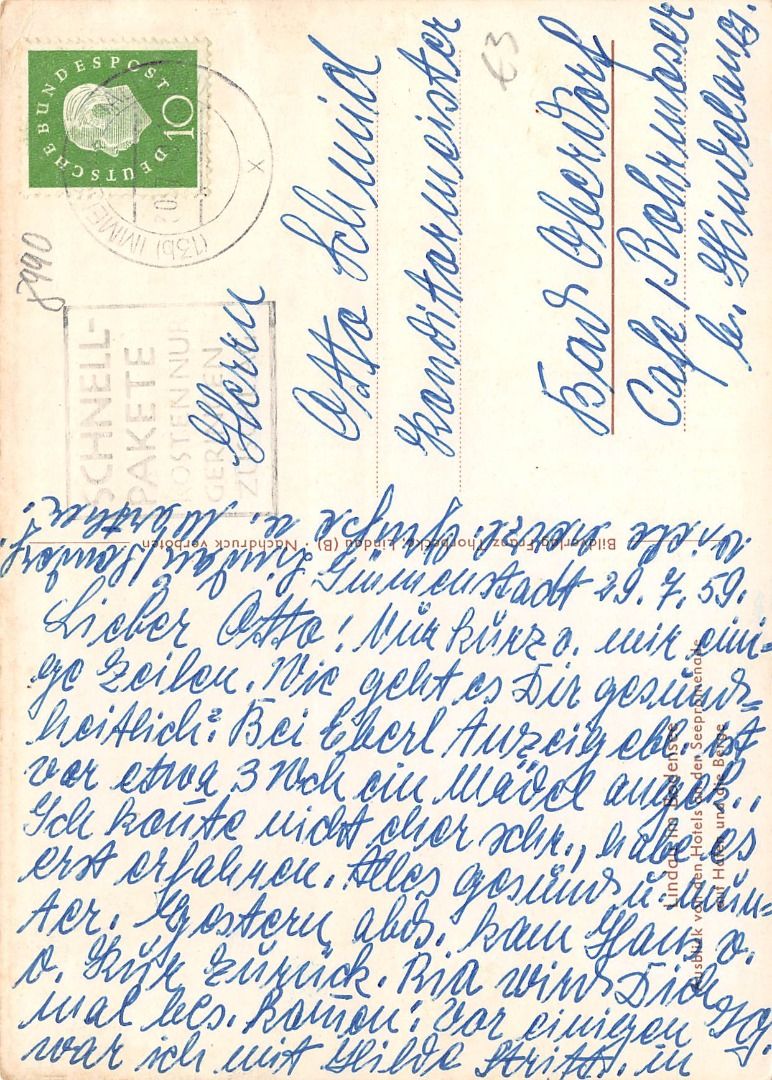 DEUTSCHE BUNDESPOST
10
(13b) IMMEN
8990
€3
SCHNELL-
PAKETE
KOSTEN NUR
GERINGEN
ZU
Herrn
Otto Schmid
Konditormeister
Bad Oberdorf
Cafe Rohrmoser
b. Hindelang.
Bildverlag Franz Thorbecke, Lindau (B) · Nachdruck verboten
Lindau im Bodensee
Ausblick von den Hotels an der Seepromenade
auf Hafen und die Berge
Immenstadt 29. 7. 59.
Lieber Otto! Nur kurz v. mir eini-
ge Zeilen. Wie geht es Dir gesund-
heitlich? Bei Eberl Anzeigebl. ist
vor etwa 3 Woch ein Mädel angek..
Ich konnte nicht eher schr., habe es
erst erfahren. Alles gesund u. mun-
ter. Gestern abd. kam Hans v.
d. Kur zurück. Ria wird Dich
mal bes. kommen. Vor einigen Tg.
war ich mit Hilde Stritt. in
Lindau
viele herzl. Grüße u.